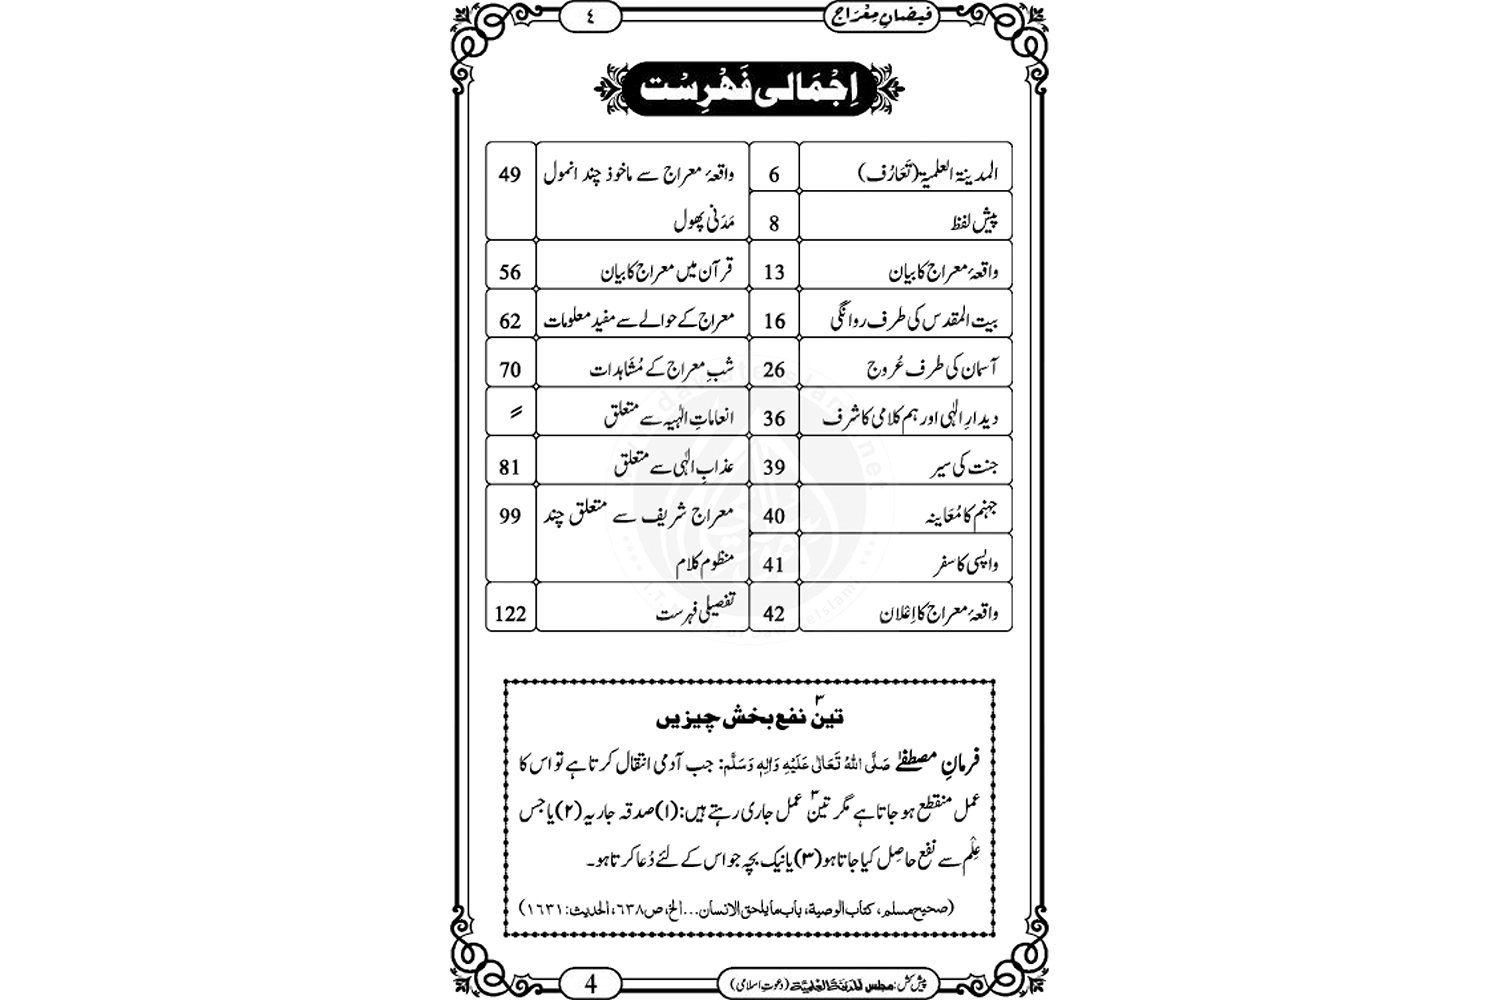 فیضانِ مِعْرَاج
٤
اِجْمَالی فَہْرِسْت
المدینۃ العلمیۃ (تَعَارُف) 6
پیش لفظ 8
واقعۂ معراج کا بیان 13
بیت المقدس کی طرف روانگی 16
آسمان کی طرف عُروج 26
دیدارِ الٰہی اور ہم کلامی کا شرف 36
جنت کی سیر 39
جہنم کا مُعَاینہ 40
واپسی کا سفر 41
واقعۂ معراج کا اِعْلان 42
واقعۂ معراج سے ماخوذ چند انمول 49
مَدَنی پھول
قرآن میں معراج کا بیان 56
معراج کے حوالے سے مفید معلومات 62
شبِ معراج کے مُشَاہدات 70
انعاماتِ الٰہیہ سے متعلق //
عذابِ الٰہی سے متعلق 81
معراج شریف سے متعلق چند 99
منظوم کلام
تفصیلی فہرست 122
تین۳ نفع بخش چیزیں
فرمانِ مصطفےٰ صَلَّی اللہُ تَعَالٰی عَلَیْہِ وَاٰلِہٖ وَسَلَّم: جب آدمی انتقال کرتا ہے تو اس کا
عمل منقطع ہو جاتا ہے مگر تین۳ عمل جاری رہتے ہیں: (۱) صدقہ جاریہ (۲) یا جس
عِلْم سے نفع حاصِل کیا جاتا ہو (۳) یا نیک بچہ جو اس کے لئے دُعا کرتا ہو۔
(صحیح مسلم، کتاب الوصیۃ، باب ما یلحق الانسان...الخ، ص۶۳۸، الحدیث:۱۶۳۱)
4
پیش کش: مجلس المدینۃ العلمیۃ (دعوت اسلامی)